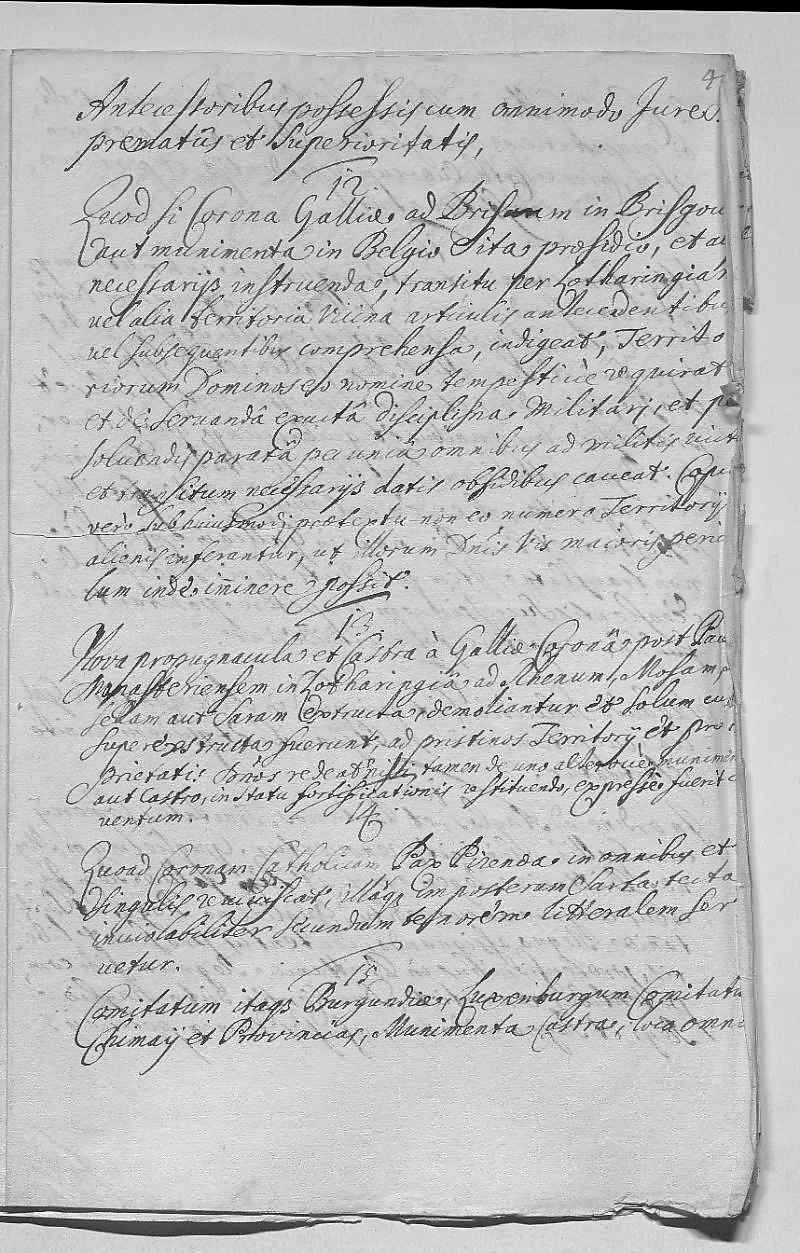 4
Antecessoribus possessis cum omnimodo Jure S.
prematûs et Superioritatis,
12.
Quod si Corona Galliæ ad Brisacum in Brisgou
aut munimenta in Belgio Sita præsidio, et a
necessarijs instruenda, transitu per Lotharingiā
uel alia territoria Vicina articulis antecedentibus
uel subsequentibus comprehensa, indigeat, Territo
riorum Dominos eo nomine tempestiuè requirat
et de seruandâ exactâ disciplina Militari, et p
soluendis paratâ pecuniâ omnibus ad militis vict
et transitum necessarijs datis obsidibus caueat. Cop
verò sub huiusmodi prætextu non eo numero Territorijs
alienis inferantur, ut illorum Dnis Vis maioris peri
lum inde im̄inere possit.
13
Noua propugnacula et Castra à Galliæ Coronâ post Pac
Monasteriensem in Lotharingiâ ad Rhenum, Mosam,
sellam aut Saram Extructa, demoliantur et solum cui
superextructa fuerunt, ad pristinos Territorij et pro
prietatis Dōnos redeat nisi tamen de uno alteroue munimen
aut Castro, in statu fortificationis restituendo, expressè fuerit
uentum.
14
Quoad Coronam Catholicam Pax Pirenæa in omnibus et
Singulis reuiuiscat, illaq3 Imposterum Sarta tecta
inuiolabiliter secundum tenorem litteralem ser
uetur.
15
Comitatum itaq3 Burgundiæ, Luxenburgum Comitatū
Chimaij et Prouincias, Munimenta Castra, loca omni